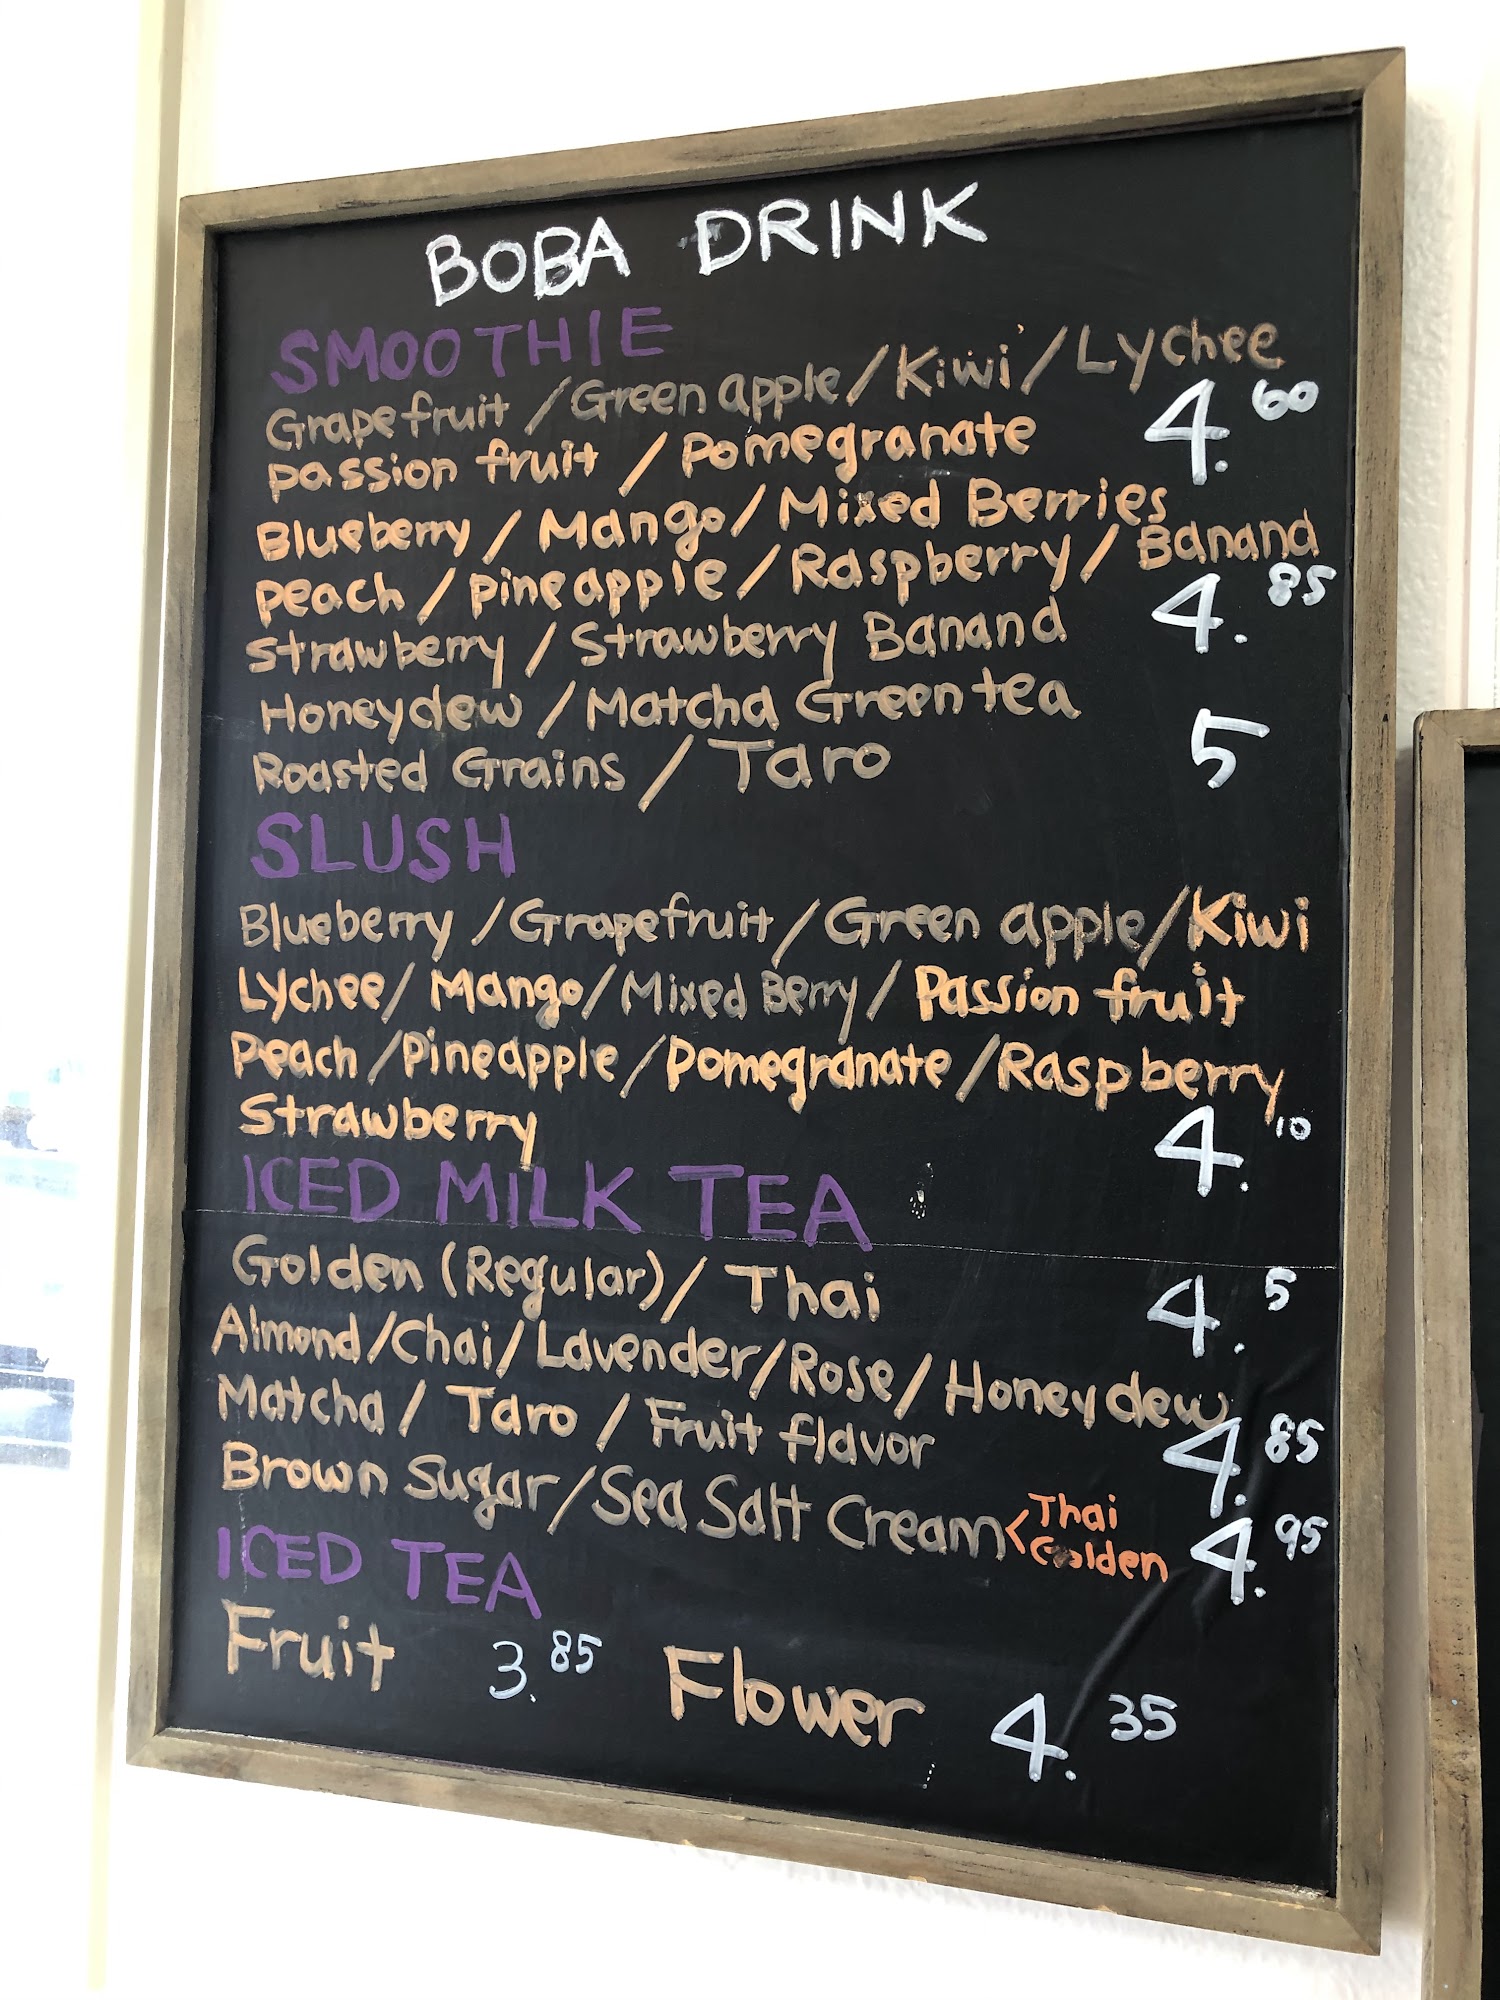 BOBA DRINK
SMOOTHIE
Grapefruit / Green apple / Kiwi / Lychee
passion fruit / Pomegranate 4.60
Blueberry / Mango / Mixed Berries
peach / pineapple / Raspberry / Banana
Strawberry / Strawberry Banana 4.85
Honeydew / Matcha Green tea
Roasted Grains / Taro 5
SLUSH
Blueberry / Grapefruit / Green apple / Kiwi
Lychee / Mango / Mixed Berry / Passion fruit
Peach / Pineapple / Pomegranate / Raspberry
Strawberry 4.10
ICED MILK TEA
Golden (Regular) / Thai 4.5
Almond / Chai / Lavender / Rose / Honeydew
Matcha / Taro / Fruit flavor 4.85
Brown Sugar / Sea Salt Cream < Thai Golden 4.95
ICED TEA
Fruit 3.85 Flower 4.35